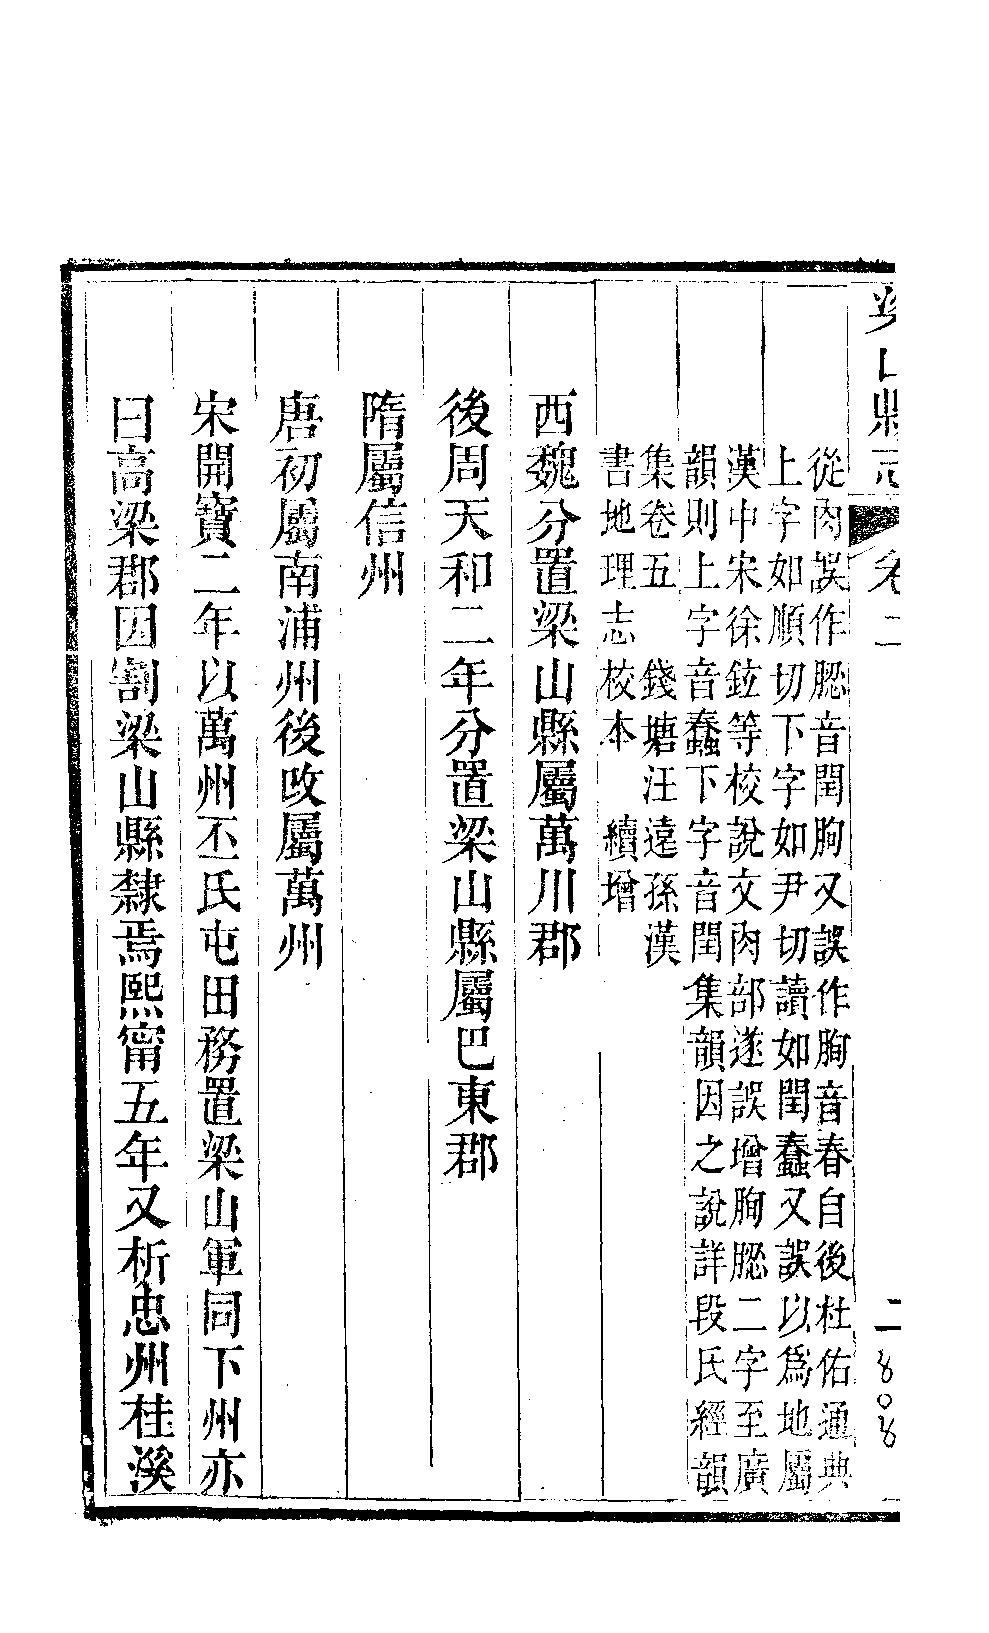 梁山縣志 卷二 二 808
從肉誤作䏰音閏朐又誤作胸音春自後杜佑通典
上字如順切下字如尹切讀如閏蠢又誤以爲地屬
漢中宋徐鉉等校說文肉部遂誤增朐䏰二字至廣
韻則上字音蠢下字音閏集韻因之說詳段氏經韻
集卷五 錢塘汪遠孫漢
書地理志校本 續增
西魏分置梁山縣屬萬川郡
後周天和二年分置梁山縣屬巴東郡
隋屬信州
唐初屬南浦州後改屬萬州
宋開寶二年以萬州丕氏屯田務置梁山軍同下州亦
曰高梁郡因割梁山縣隸焉熙甯五年又析忠州桂溪